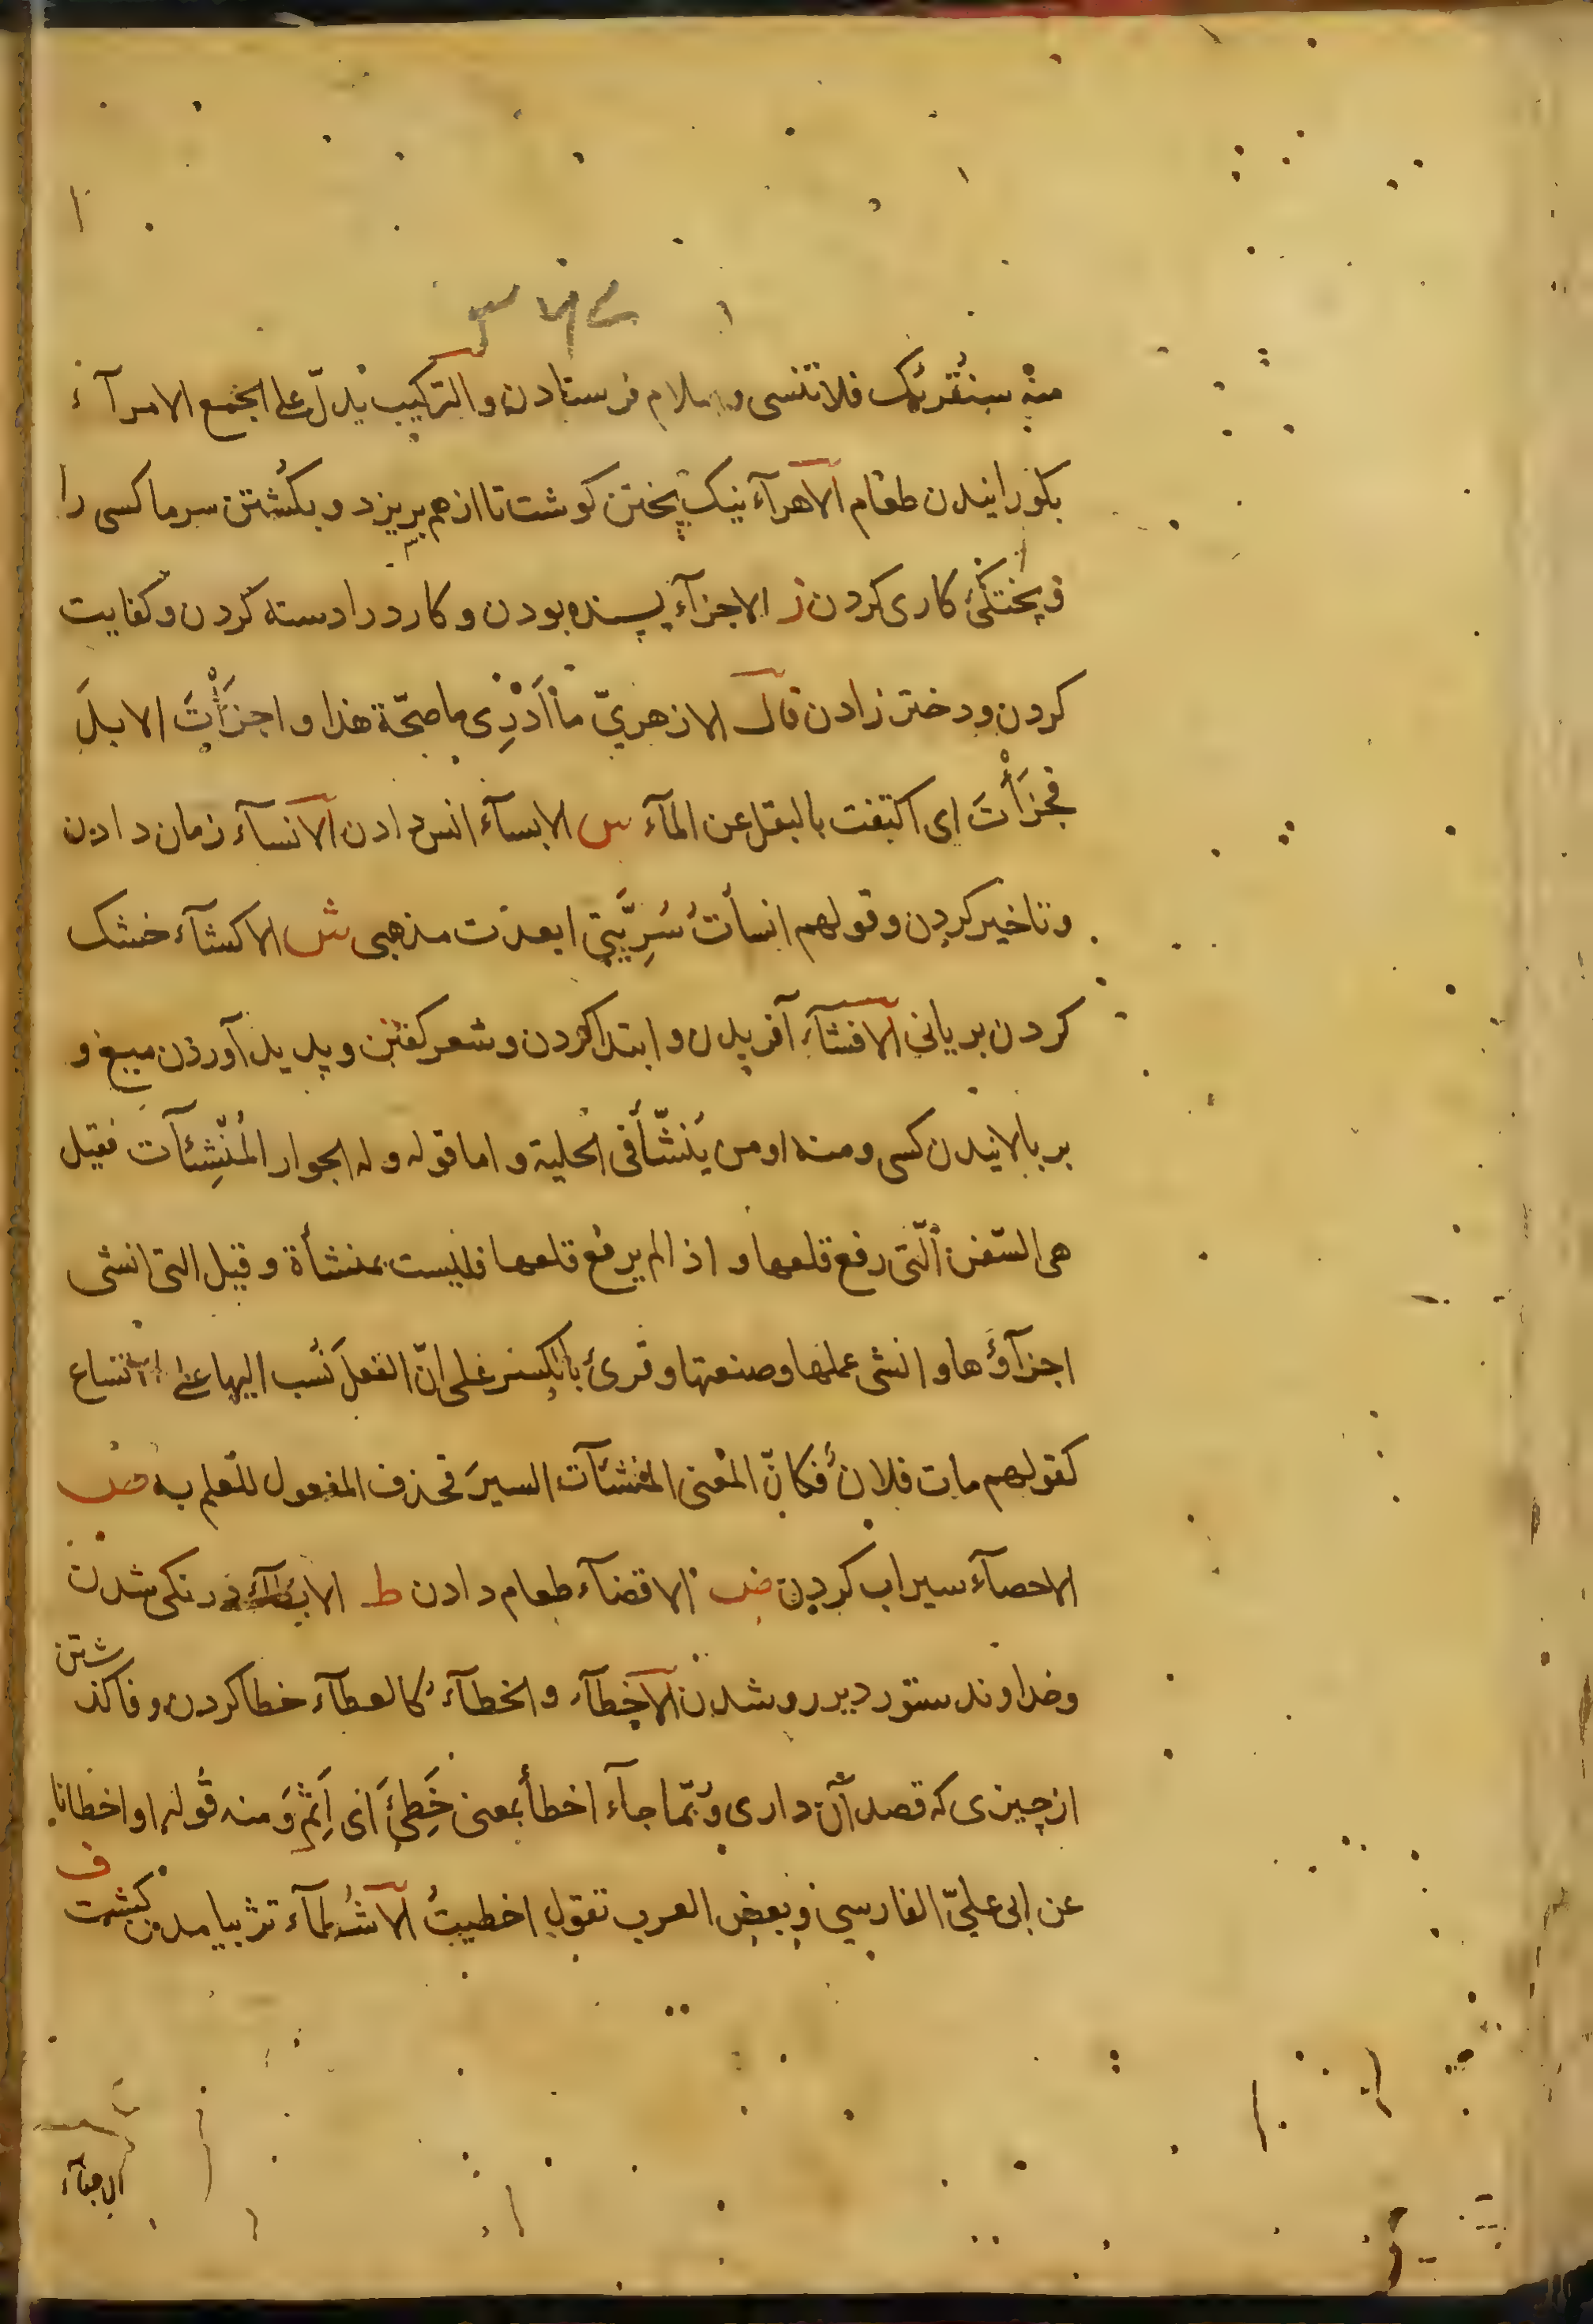 منه سنقرئک فلا تنسی و سلام فرستادن والترکیب یدلّ علی الجمع الامرآء
بکورانیدن طعام الاهرآء نیک پختن کوشت تا از هم بریزد و بکشتن سرما کسی را
و پختکیٔ کاری کردن ز الاجزآء پسنده بودن و کارد را دسته کردن و کفایت
کردن و دختر زادن قال الازهریّ ما اَدْرِی ما صحّة هذا و اجزَأَتَ الابلَ
فجَزَأْتَ ای اکتفت بالبقل عن المآء س الابسآء انس دادن الانسآء زمان دادن
و تاخیر کردن و قولهم انسأتُ سُرِبَّتِی ابعدت مذهبی ش الاکشآء خشک
کردن بریانی الانشآء آفریدن و ابتدا کردن و شعر کفتن و پدید آوردن میغ و
بر بالانیدن کسی و منه اومن یُنَشَّأُ فی الحلیة و اما قوله و له الجوار المُنْشِئآت فقیل
هی السّفن الّتی رفع قلعها و اذا لم یرفع قلعها فلیست بمنشأة و قیل التی انشی
اجزآؤها و انشی عملها و صنعتها و قریٔ بالکسر علی انّ الفعل نُسب الیها علی الاتساع
کقولهم مات فلانٌ فکانّ المعنی المنشئآت السیرَ فحذف المفعول للعلم به ص
الاحصآء سیراب کردن ض الاقضآء طعام دادن ط الابطآء درنکی شدن
و خداوند ستور دیر رو شدن الاخطآء و الخطآء کالعطآء خطا کردن و فاکذشتن
از چیزی که قصد آن داری و ربّما جآء اخطأ بمعنی خَطِئَ ای اَثِمَ و منه قوله او اخطانا
عن ابی علیّ الفارسی و بعض العرب تقول اخطیتُ الاشطآء تژ بیامدن کشت ف
الاجفآء